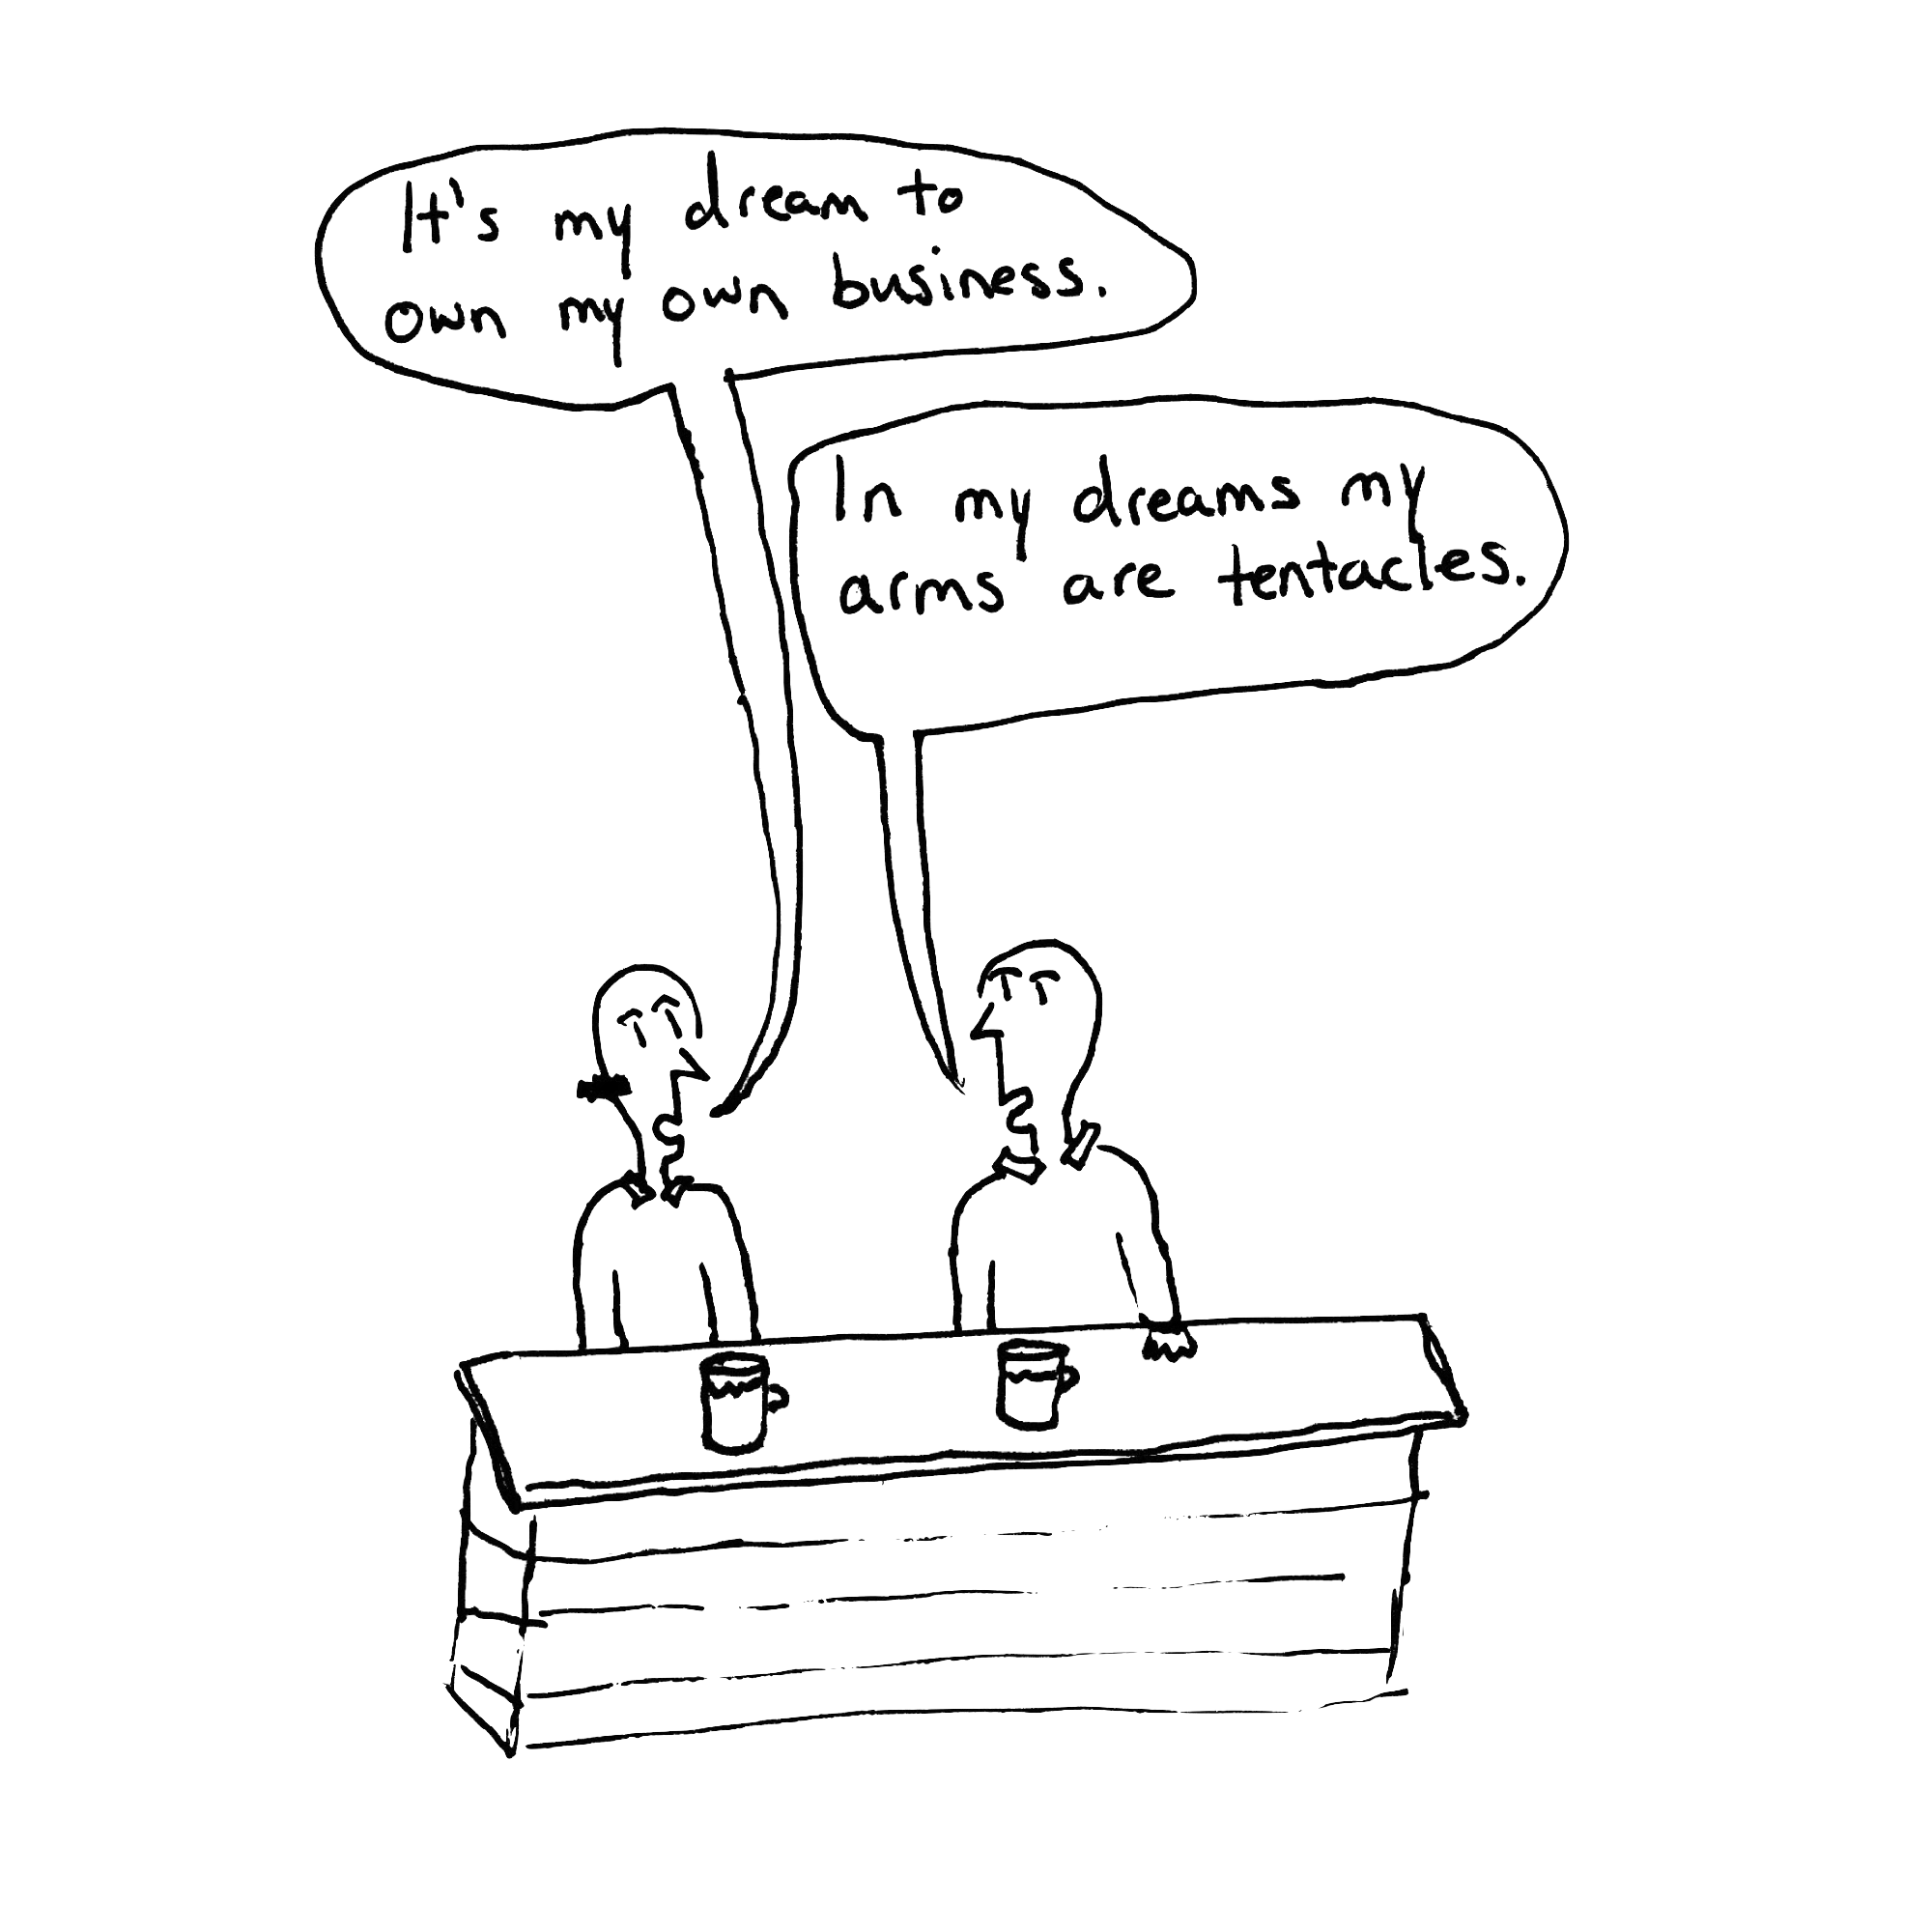 It's my dream to
own my own business.
In my dreams my
arms are tentacles.